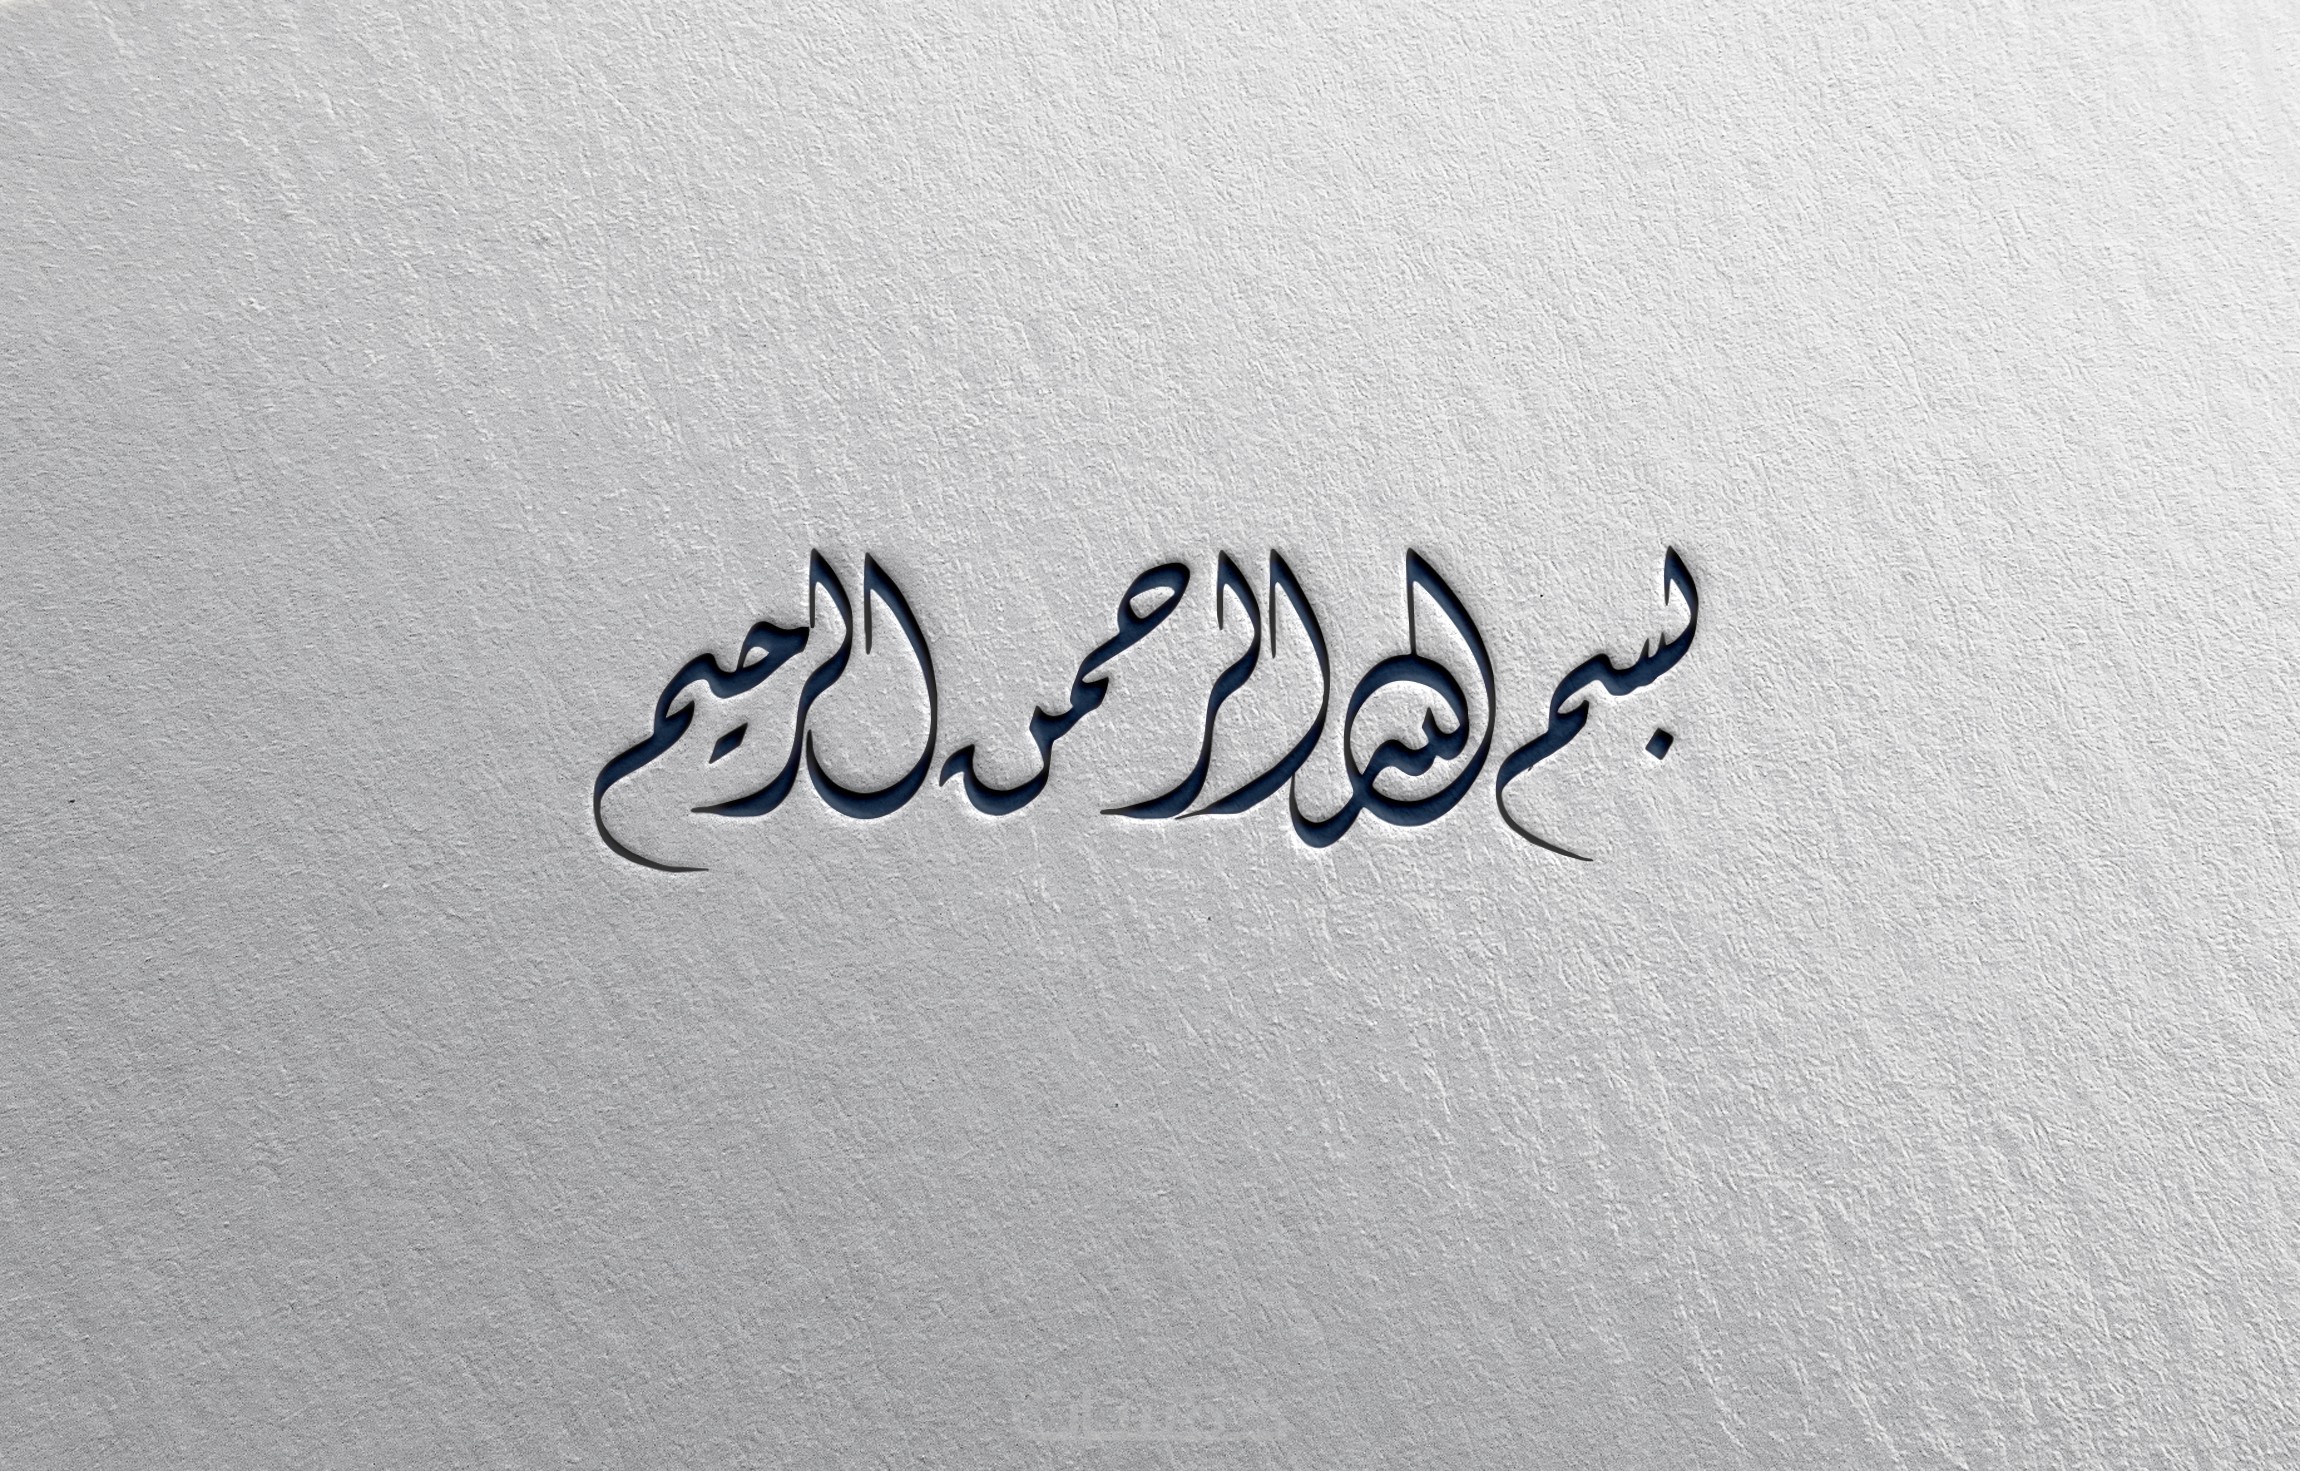 بسم الله الرحمن الرحيم
خمسات